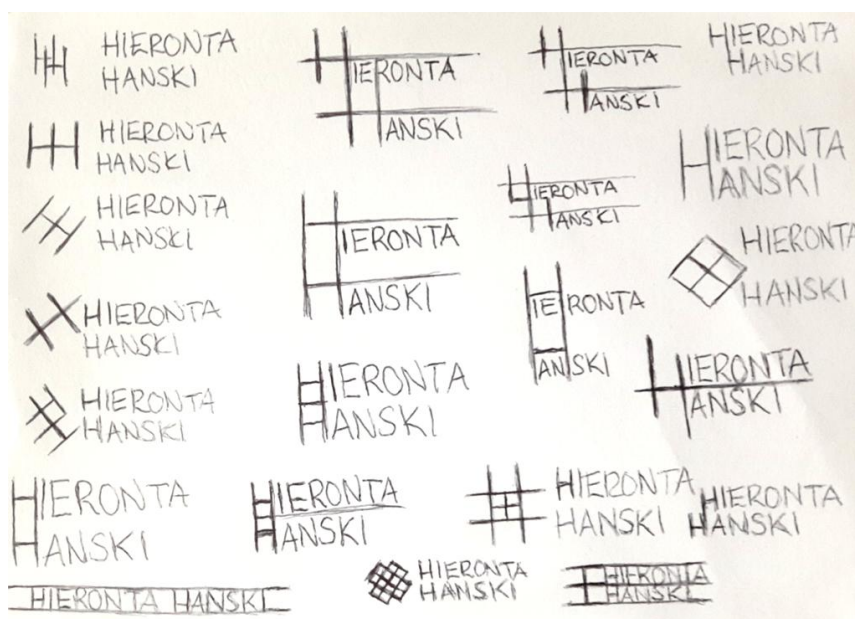 HIERONTA
HANSKI
HIERONTA
HANSKI
HIERONTA
HANSKI
HIERONTA
HANSKI
HIERONTA
HANSKI
HIERONTA
HANSKI
HIERONTA
HANSKI
HIERONTA
HANSKI
HIERONTA
HANSKI
HIERONTA
HANSKI
HIERONTA
HANSKI
HIERONTA
HANSKI
HIERONTA
HANSKI
HIERONTA
HANSKI
HIERONTA
HANSKI
HIERONTA
HANSKI
HIERONTA
HANSKI
HIERONTA
HANSKI
HIERONTA
HANSKI
HIERONTA
HANSKI
HIERONTA
HANSKI
HIERONTA HANSKI